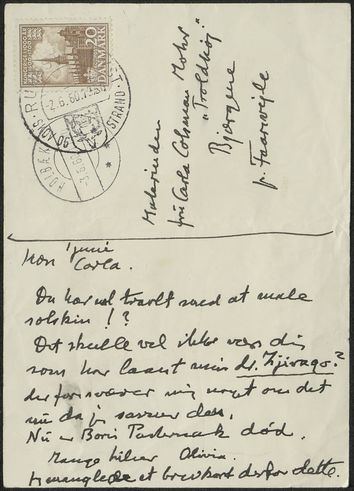 20
DANMARK
-2.6.60.
STRAND
HOLBÆK
Malerinden
fru Carla Colsman Mohr
"Troldhøj"
Bjergene
p. Faarevejle
1 juni
Kære Carla.
Du har vel travlt med at male
solskin !?
Det skulle vel ikke være dig
som har laant min dr. Zjivago?
du forsvarer mig noget om det
nu da jeg savner den.
Nu er Boris Pasternak død.
mange hilsner Olivia.
manglede et brevkort derfor dette.